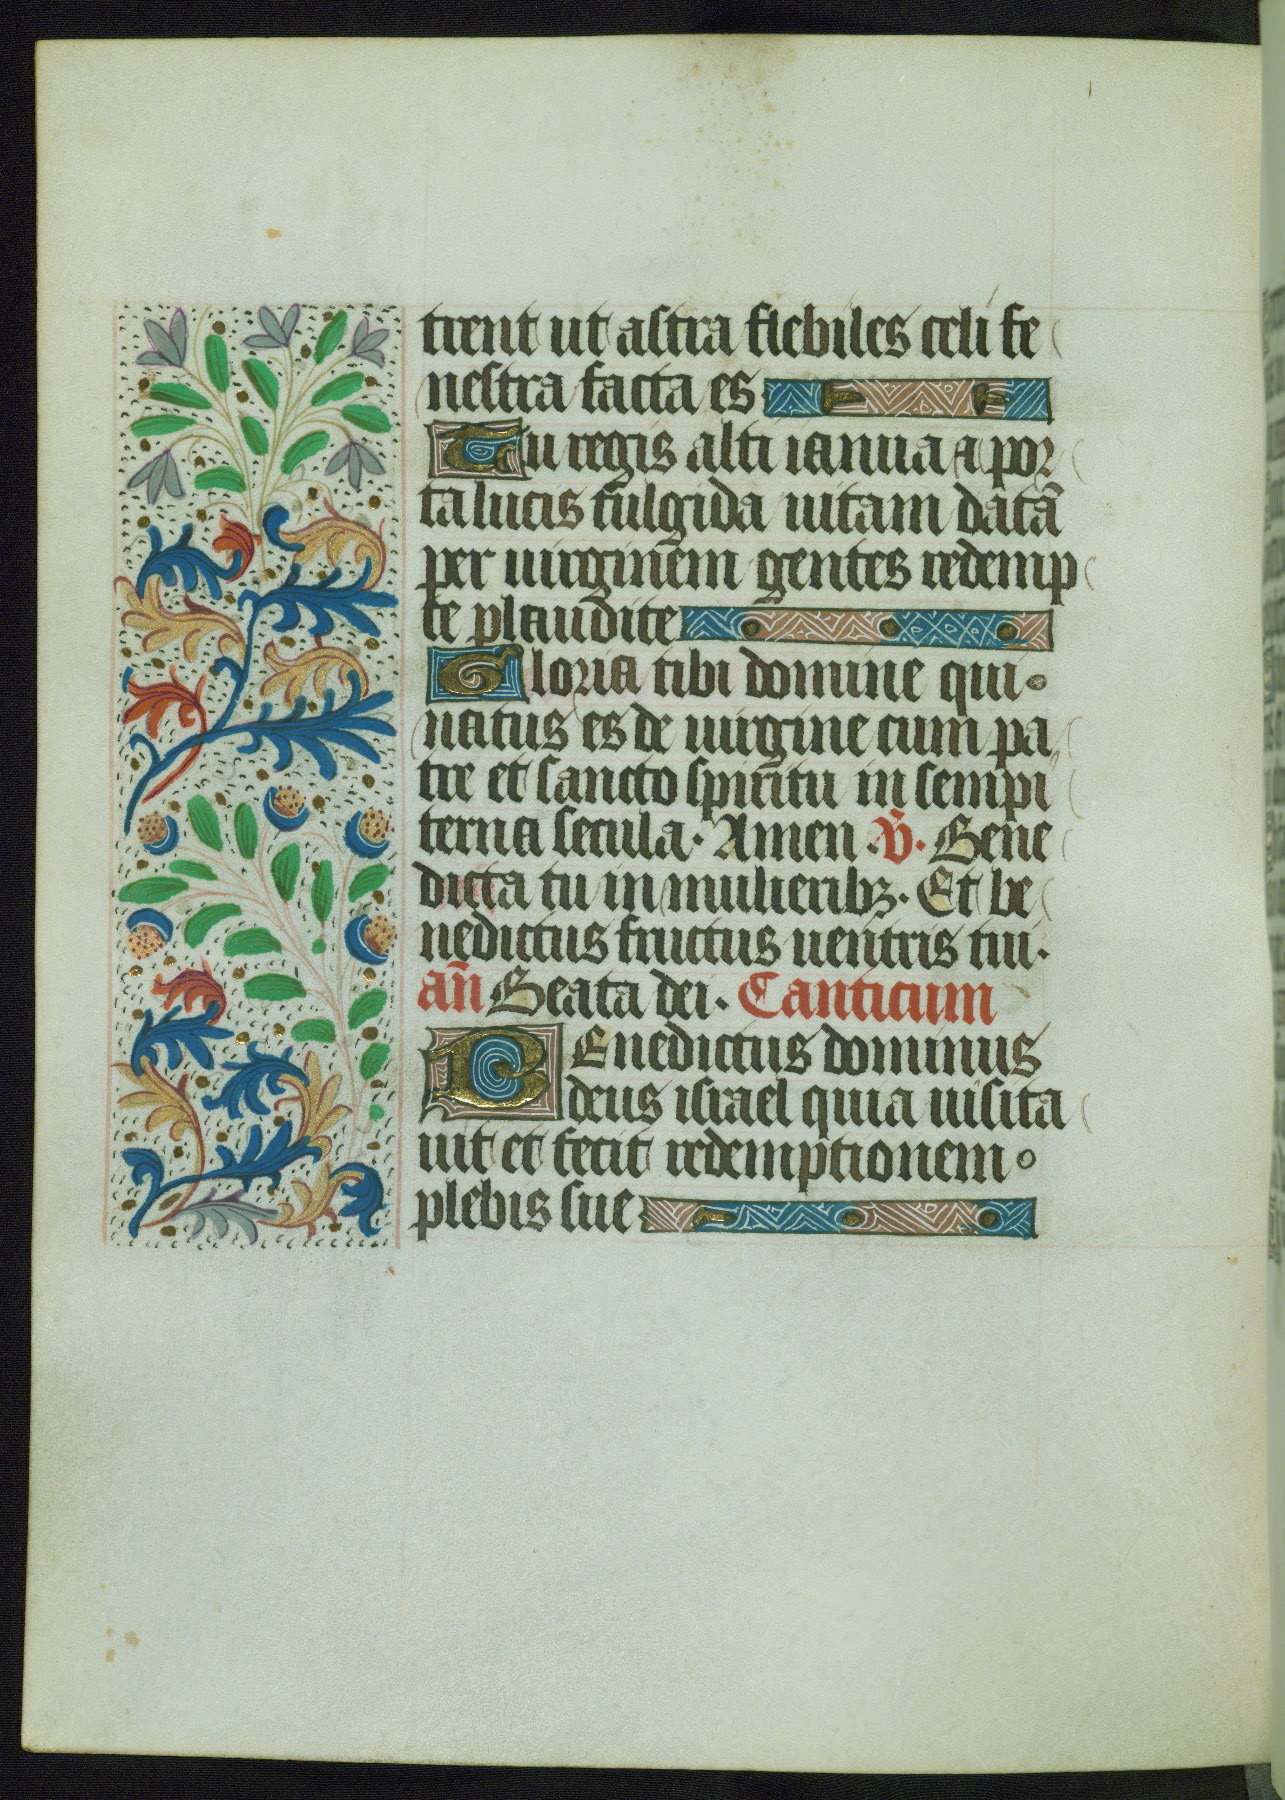 trent ut astra flebiles celi fe
nestra facta es
Tu regis alti ianua a por
ta lucis fulgida uitam datā
per uirginem gentes redemp
te plaudite
Gloria tibi domine qui
natus es de uirgine cum pa
tre et sancto spiritu in sempi
terna secula. Amen. V̄. Bene
dicta tu in mulieribꝫ. Et be
nedictus fructus uentris tui.
an̄ Beata dei. Canticum
BEnedictus dominus
deus israel quia uisita
uit et fecit redemptionem
plebis sue